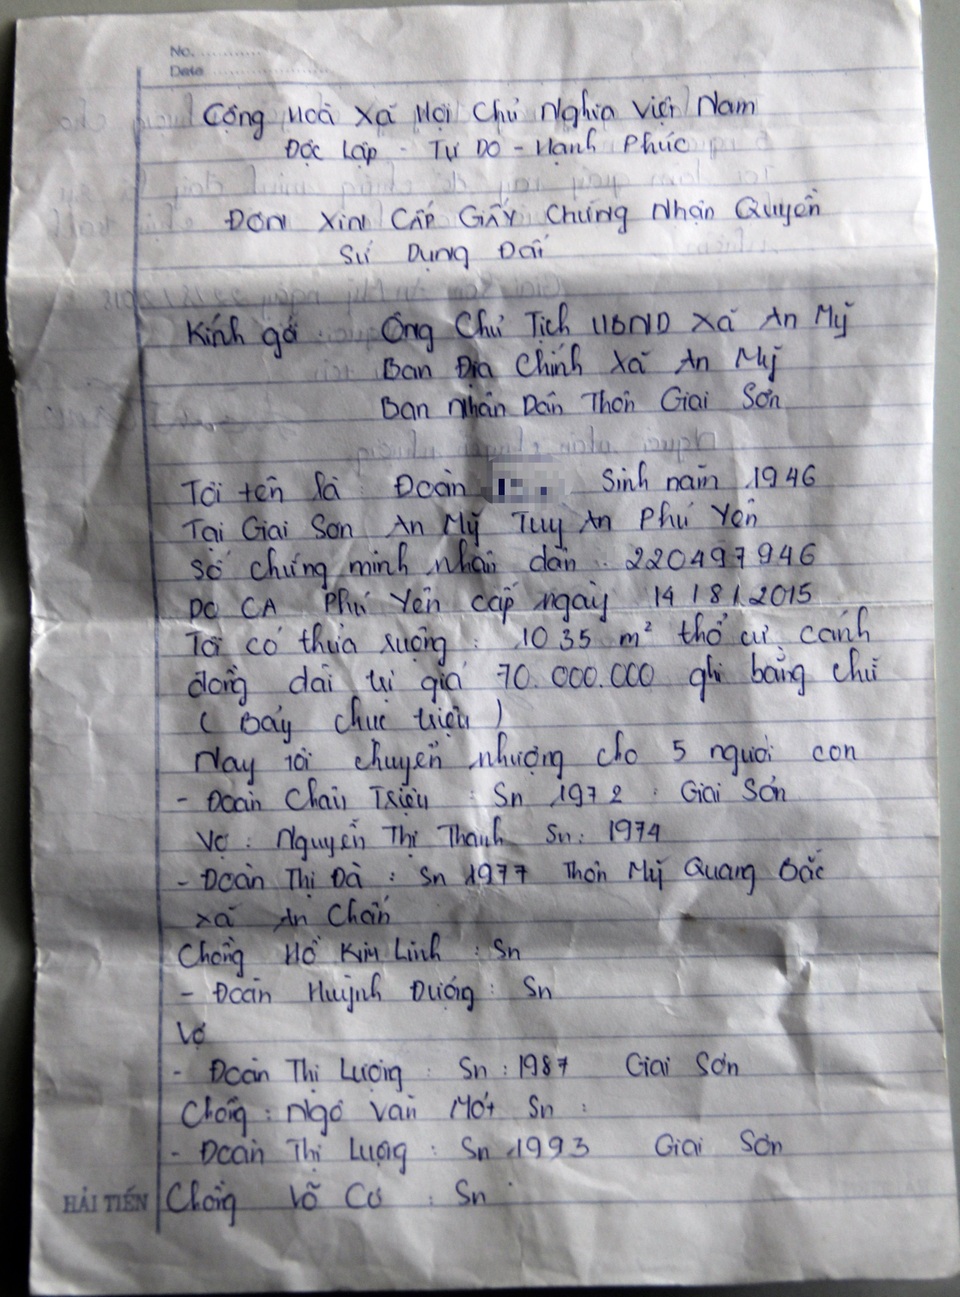 No.
Date
Cộng Hoà Xã Hội Chủ Nghĩa Việt Nam
Độc Lập - Tự Do - Hạnh Phúc
Đơn Xin Cấp Gấy Chứng Nhận Quyền
Sử Dụng Đấi
Kính gởi Ông Chủ Tịch UBND Xã An Mỹ
Ban Địa Chính Xã An Mỹ
Ban Nhân Dân Thôn Giai Sơn
Tôi tên là : Đoàn Sinh năm 1946
Tại Giai Sơn An Mỹ Tuy An Phú Yên
Số chứng minh nhân dân : 220497946
Do CA Phú Yên cấp ngày 14 / 8 / 2015
Tôi có thửa ruộng : 1035 m² thổ cư cánh
đồng dài trị giá 70.000.000 ghi bằng chữ
( Bảy chục triệu )
Nay tôi chuyển nhượng cho 5 người con
- Đoàn Chấn Triệu : Sn 1972 : Giai Sơn
Vợ : Nguyễn Thị Thanh Sn : 1974
- Đoàn Thị Đà : Sn 1977 Thôn Mỹ Quang Bắc
xã An Chấn
Chồng Hồ Kim Linh : Sn
- Đoàn Huỳnh Đường : Sn
Vợ
- Đoàn Thị Lượng : Sn : 1987 Giai Sơn
Chồng : Ngô Văn Mót Sn :
- Đoàn Thị Lượng : Sn 1993 Giai Sơn
HẢI TIẾN Chồng Võ Cơ : Sn